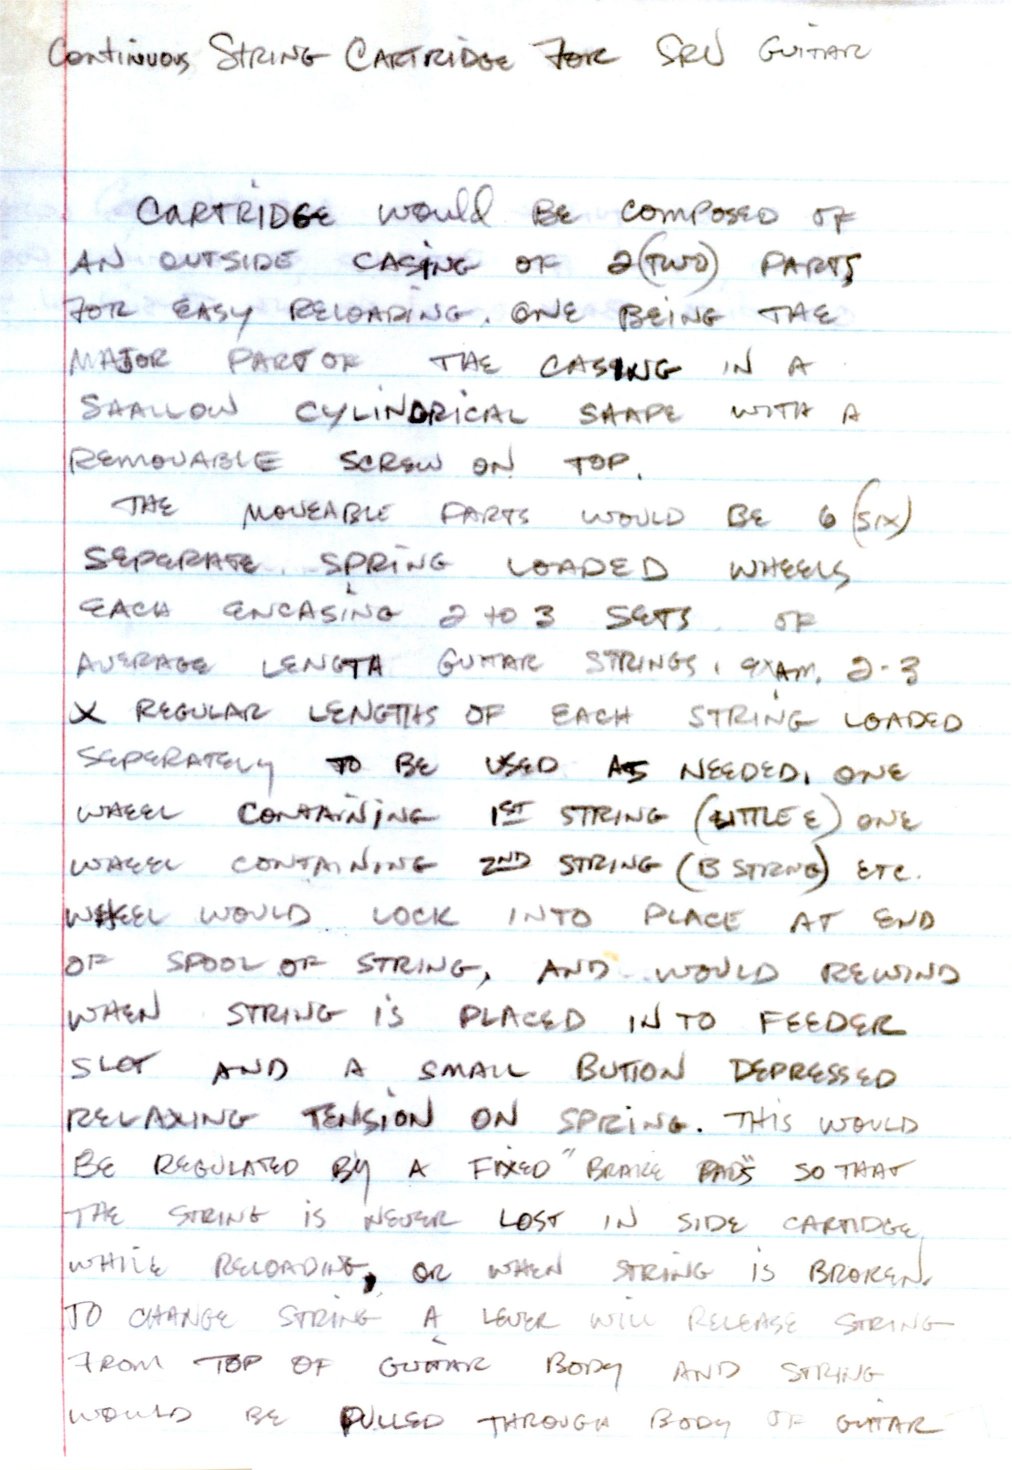 Continuous String Cartridge For SRV Guitar
Cartridge would be composed of
an outside casing of 2 (two) parts
for easy reloading. One being the
major part of the casing in a
shallow cylindrical shape with a
removable screw on top.
The moveable parts would be 6 (six)
seperate spring loaded wheels
each encasing 2 to 3 sets of
average length guitar strings, exam. 2-3
x regular lengths of each string loaded
seperately to be used as needed, one
wheel containing 1st string (little E) one
wheel containing 2nd string (B string) etc.
Wheel would lock into place at end
of spool of string, and would rewind
when string is placed into feeder
slot and a small button depressed
relaxing tension on spring. This would
be regulated by a fixed "brake pads" so that
the string is never lost in side cartidge
while reloading, or when string is broken.
To change string a lever will release string
from top of guitar body and string
would be pulled through body of guitar